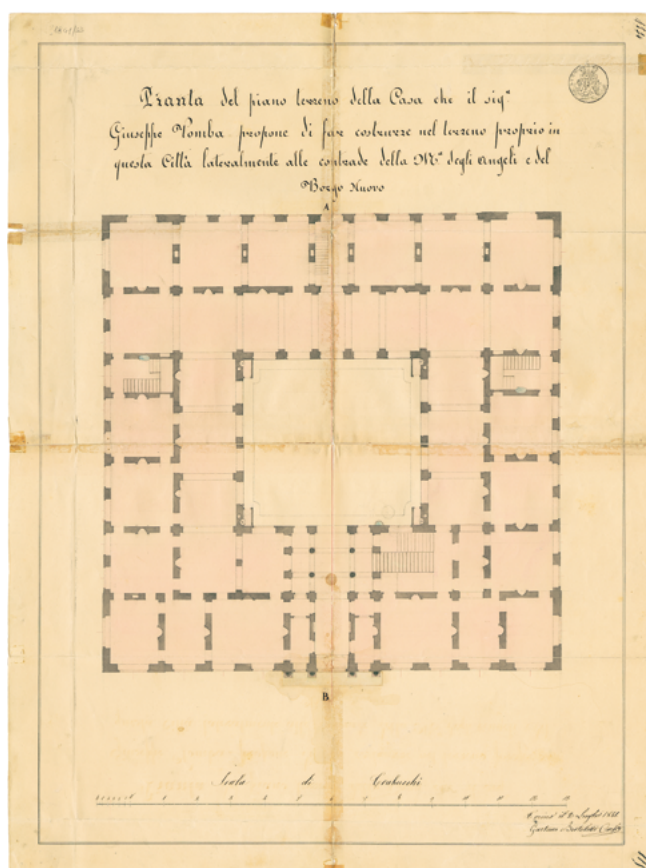 Pianta del piano terreno della Casa che il sig.ʳ
Giuseppe Pomba propone di far costrurre nel terreno proprio in
questa Città lateralmente alle contrade della M.ᵃ degli Angeli e del
Borgo Nuovo
A
B
Scala di Trabucchi
Torino il Luglio
Gaetano